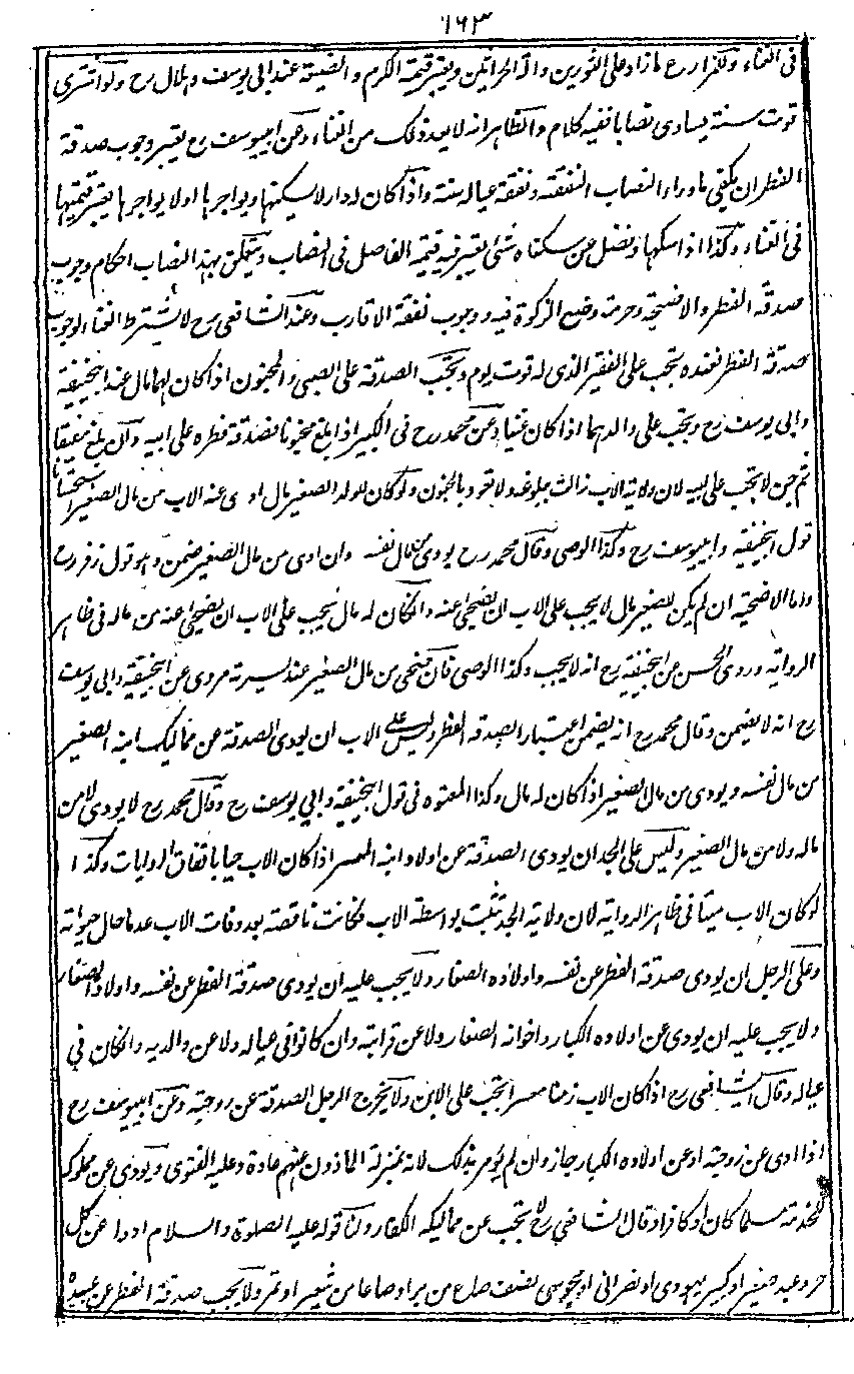 ١٦٣
فى الغناء وللمزارع ما زاد على الثورين وآلة الحراثين ويعتبر قيمة الكرم والضيعة عند ابى يوسف وهلال رح ولو اشترى
قوت سنة يساوى نصابا ففيه كلام والظاهر انه لا يعد ذلك من الغناء وعن ابيوسف رح يعتبر وجوب صدقة
الفطر ان يكفى ما وراء النصاب النفقته ونفقة عياله سنة واذا كان له دار لا يسكنها ويواجرها او لا يواجرها يعتبر قيمتها
فى الغناء وكذا اذا سكنها وفضل عن سكناه شئ يعتبر فيه قيمة الفاضل فى النصاب ويتعلق بهذا النصاب احكام وجوب
صدقة الفطر والاضحية وحرمة وضع الزكوة فيه ووجوب نفقة الاقارب وعند الشافعى رح لا يشترط الغناء لوجوب
صدقة الفطر فعنده يجب على الفقير الذى له قوت يوم وتجب الصدقة على الصبى والمجنون اذا كان لهما مال عند ابيحنيفة
وابى يوسف رح ويجب على والدهما اذا كان غنيا وعن محمد رح فى الكبير اذا بلغ مجنونا فصدقة فطره على ابيه وان بلغ مفيقا
ثم جن لا يجب على ابيه لان ولاية الاب زالت ببلوغه ولا تعود بالجنون ولو كان للولد الصغير مال ادى عنه الاب من مال الصغير استحسانا
قول ابيحنيفة وابيوسف رح وكذا الوصى وقال محمد رح يودى من مال نفسه وان ادى من مال الصغير ضمن وهو قول زفر رح
واما الاضحية ان لم يكن للصغير مال لا يجب على الاب ان يضحى عنه وان كان له مال يجب على الاب ان يضحى عنه من ماله فى ظاهر
الرواية وروى الحسن عن ابيحنيفة رح انه لا يجب وكذا الوصى فان ضحى من مال الصغير عند مروى عن ابيحنيفة وابى يوسف
رح انه لا يضمن وقال محمد رح انه يضمن اعتبارا لصدقة الفطر وليس على الاب ان يودى الصدقة عن مماليك ابنه الصغير
من مال نفسه ويودى من مال الصغير اذا كان له مال وكذا المعتوه فى قول ابيحنيفة وابى يوسف رح وقال محمد رح لا يودى لا من
ماله ولا من مال الصغير وليس على الجد ان يودى الصدقة عن اولاد ابنه المعسر اذا كان الاب حيا باتفاق الروايات وكذا ا
لو كان الاب ميتا فى ظاهر الرواية لان ولاية الجد تثبت بواسطة الاب فكانت ناقصة بعد وفات الاب عدما حال حيواته
وعلى الرجل ان يودى صدقة الفطر عن نفسه واولاده الصغار ولا يجب عليه ان يودى صدقة الفطر عن نفسه واولاد الصغار
ولا يجب عليه ان يودى عن اولاده الكبار واخوانه الصغار ولا عن قرابته وان كانوا فى عياله ولا عن والديه وان كان فى
عياله وقال الشافعى رح اذا كان الاب زمنا معسرا يجب على الابن ولا يخرج الرجل الصدقة عن زوجته وعن ابيوسف رح
اذا ادى عن زوجته او عن اولاده الكبار جاز وان لم يومر بذلك لانه بمنزلة الماذون عنهم عادة وعليه الفتوى ويودى عن مملوكه
للخدمة مسلما كان او كافرا وقال الشافعى رح لا يجب عن مماليكه الكفار ولنا قوله عليه الصلوة والسلام ادوا عن كل
حر وعبد صغير او كبير يهودى او نصرانى او مجوسى نصف صاع من بر او صاعا من شعير او تمر ولا يجب صدقة الفطر عن عبيده